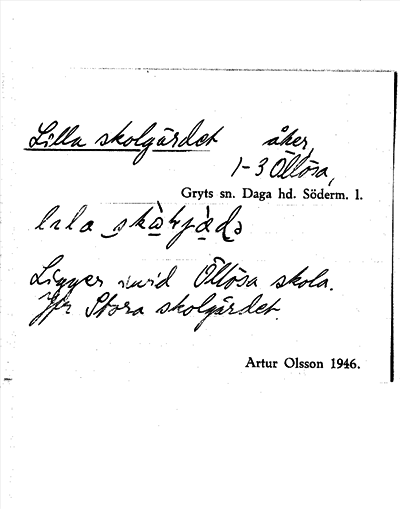 Lilla skolgärdet åker,
1-3 Öllösa,
Gryts sn. Daga hd. Söderm. l.
Ligger invid Öllösa skola.
Jfr Stora skolgärdet.
Artur Olsson 1946.